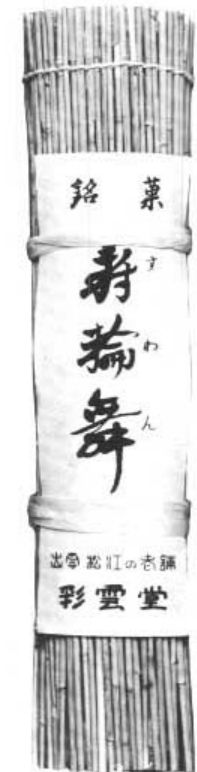 銘菓
寿輪舞
すわん
出雲松江の老舗
彩雲堂